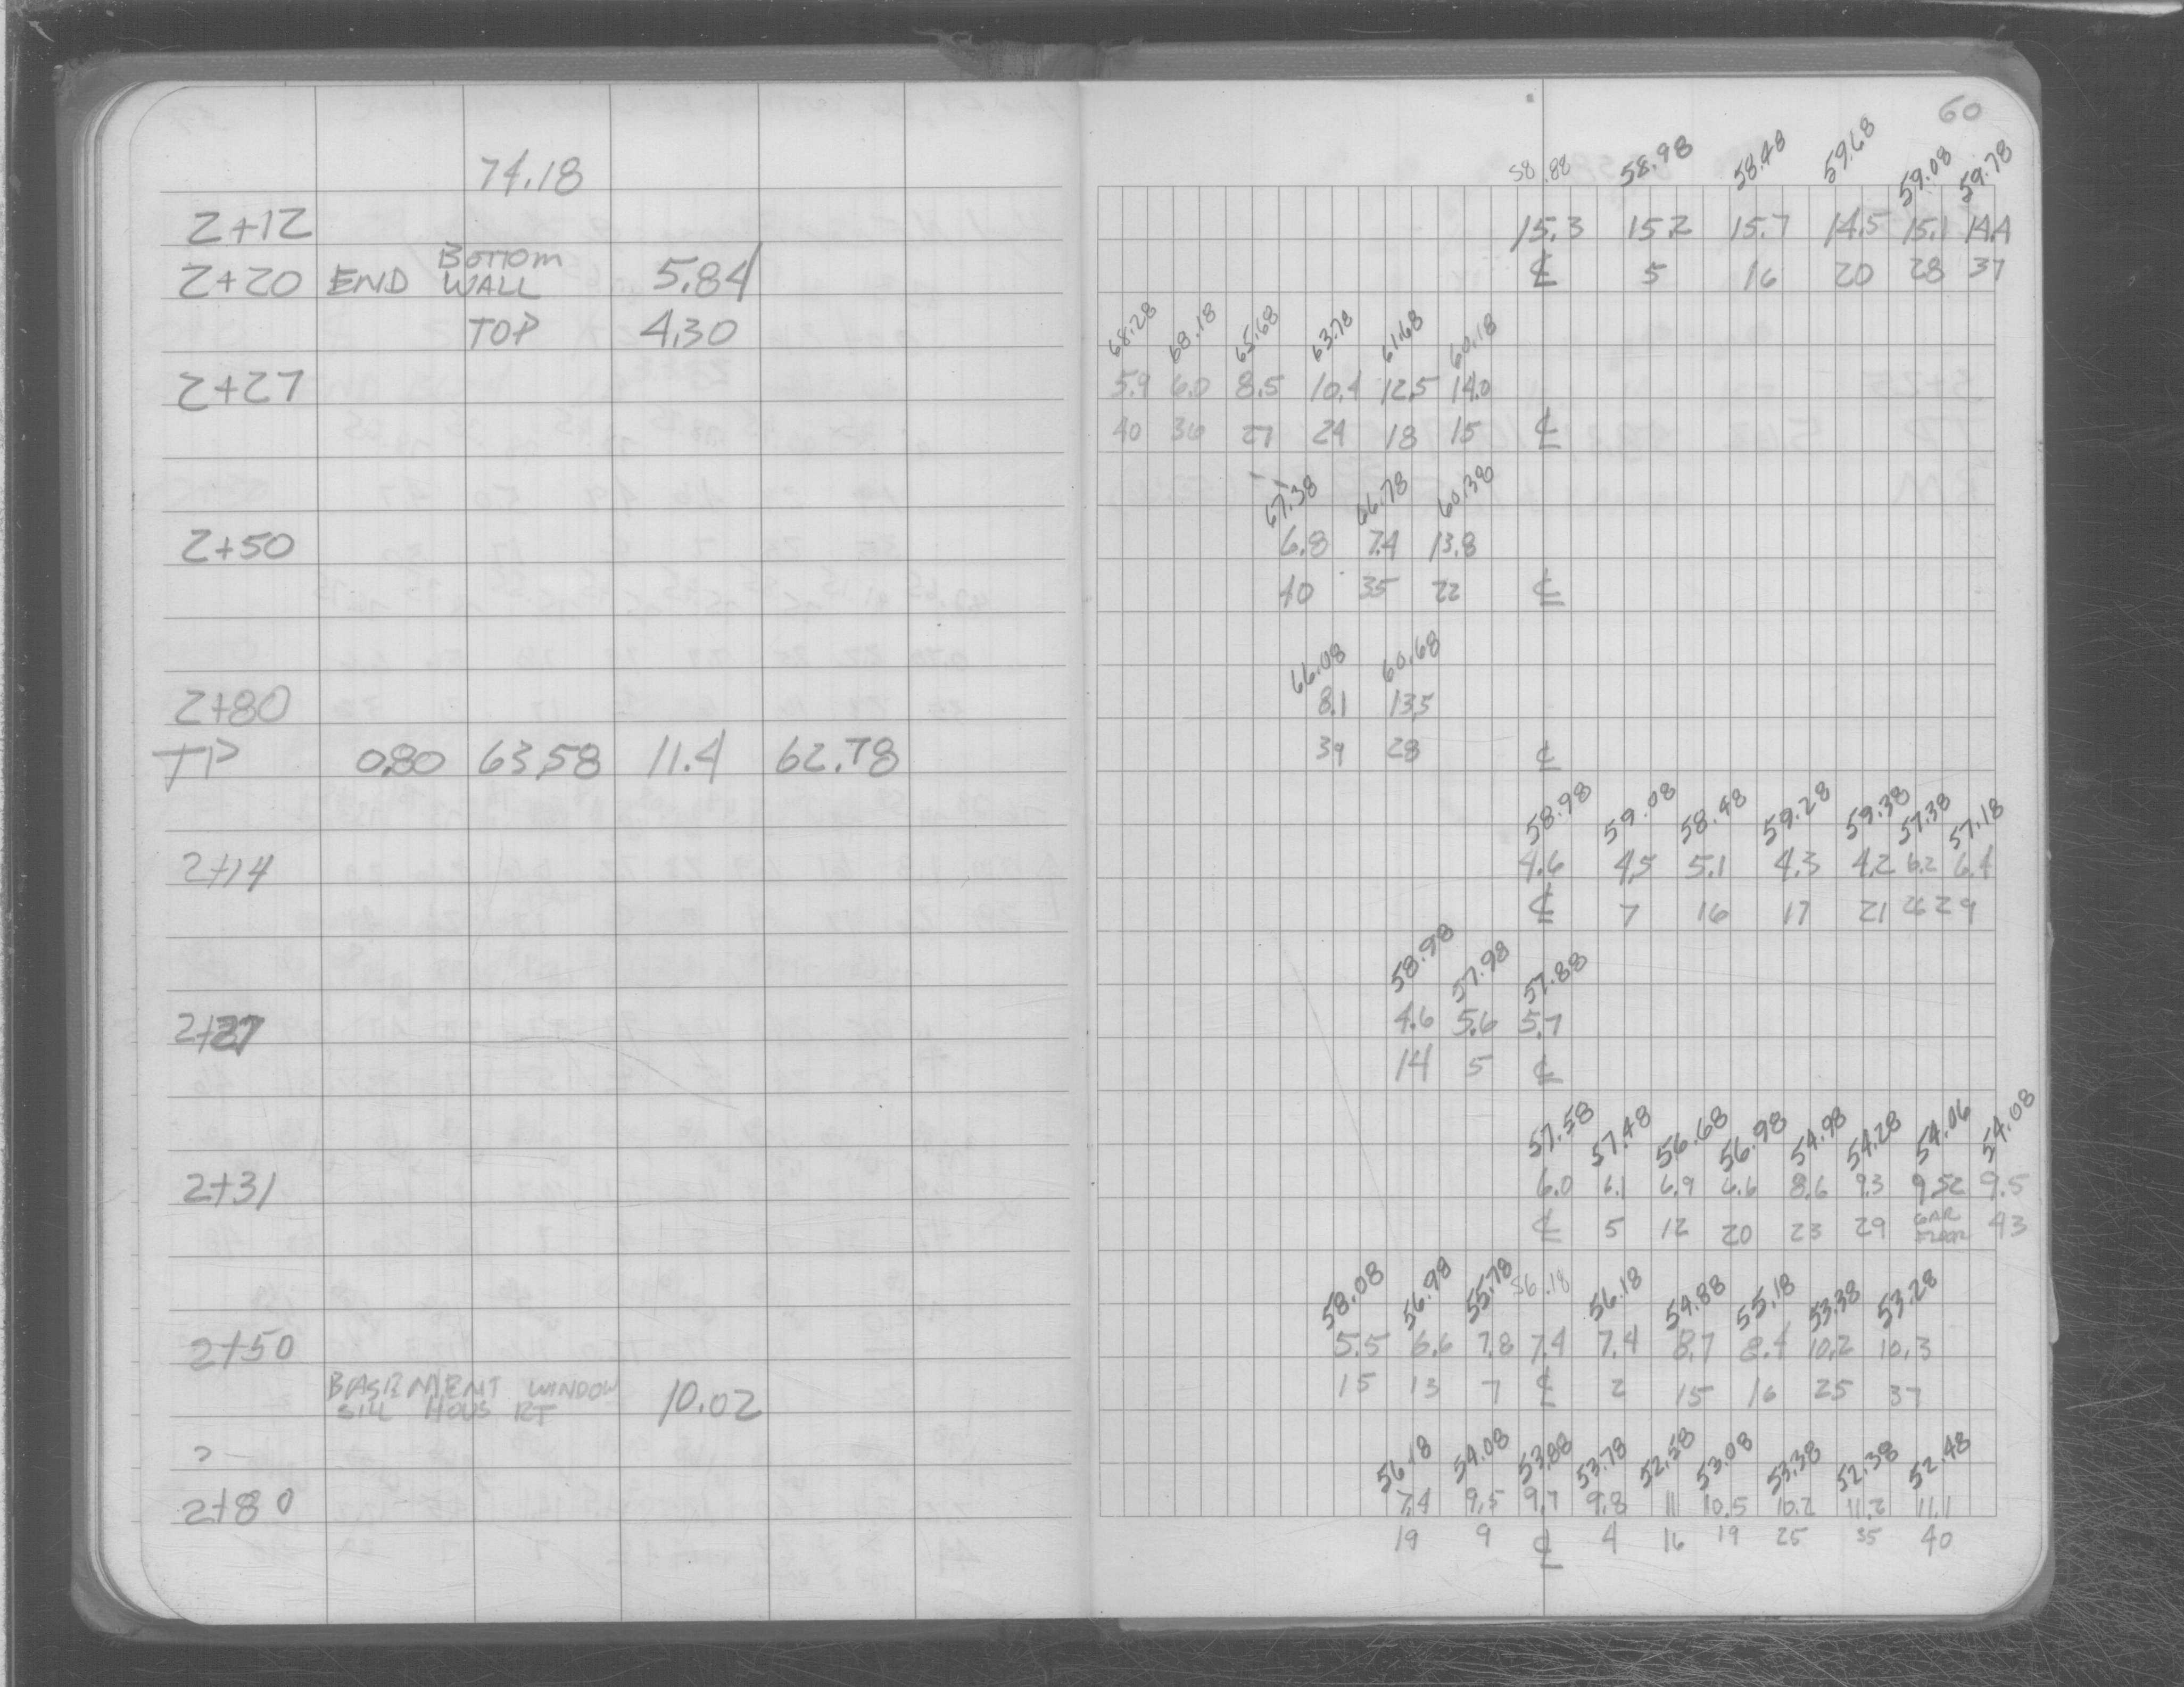 60
74.18
58.88 58.98 58.48 59.68 59.08 59.78
2+12 15.3 15.2 15.7 14.5 15.1 14.4
℄ 5 16 20 28 37
2+20 END BOTTOM WALL 5.84
TOP 4.30
68.28 68.18 65.68 63.78 61.68 60.18
2+27 5.9 6.0 8.5 10.4 12.5 14.0
40 36 27 24 18 15 ℄
67.38 66.78 60.38
2+50 6.8 7.4 13.8
40 35 22 ℄
66.08 60.68
2+80 8.1 13.5
TP 0.80 63.58 11.4 62.78 39 28 ℄
58.98 59.08 58.48 59.28 59.38 57.38 57.18
2+14 4.6 4.5 5.1 4.3 4.2 6.2 6.4
℄ 7 16 17 21 26 29
58.98 57.98 57.88
2+27 4.6 5.6 5.7
14 5 ℄
57.58 57.48 56.68 56.98 54.98 54.28 54.06 54.08
2+31 6.0 6.1 6.9 6.6 8.6 9.3 9.52 9.5
℄ 5 12 20 23 29 GAR FLOOR 43
58.08 56.98 55.78 56.18 56.18 54.88 55.18 53.38 53.28
2+50 5.5 6.6 7.8 7.4 7.4 8.7 8.4 10.2 10.3
15 13 7 ℄ 2 15 16 25 37
BASEMENT WINDOW
SILL HOUS RT 10.02
?
56.18 54.08 53.88 53.78 52.58 53.08 53.38 52.38 52.48
2+80 7.4 9.5 9.7 9.8 11 10.5 10.2 11.2 11.1
19 9 ℄ 4 16 19 25 35 40